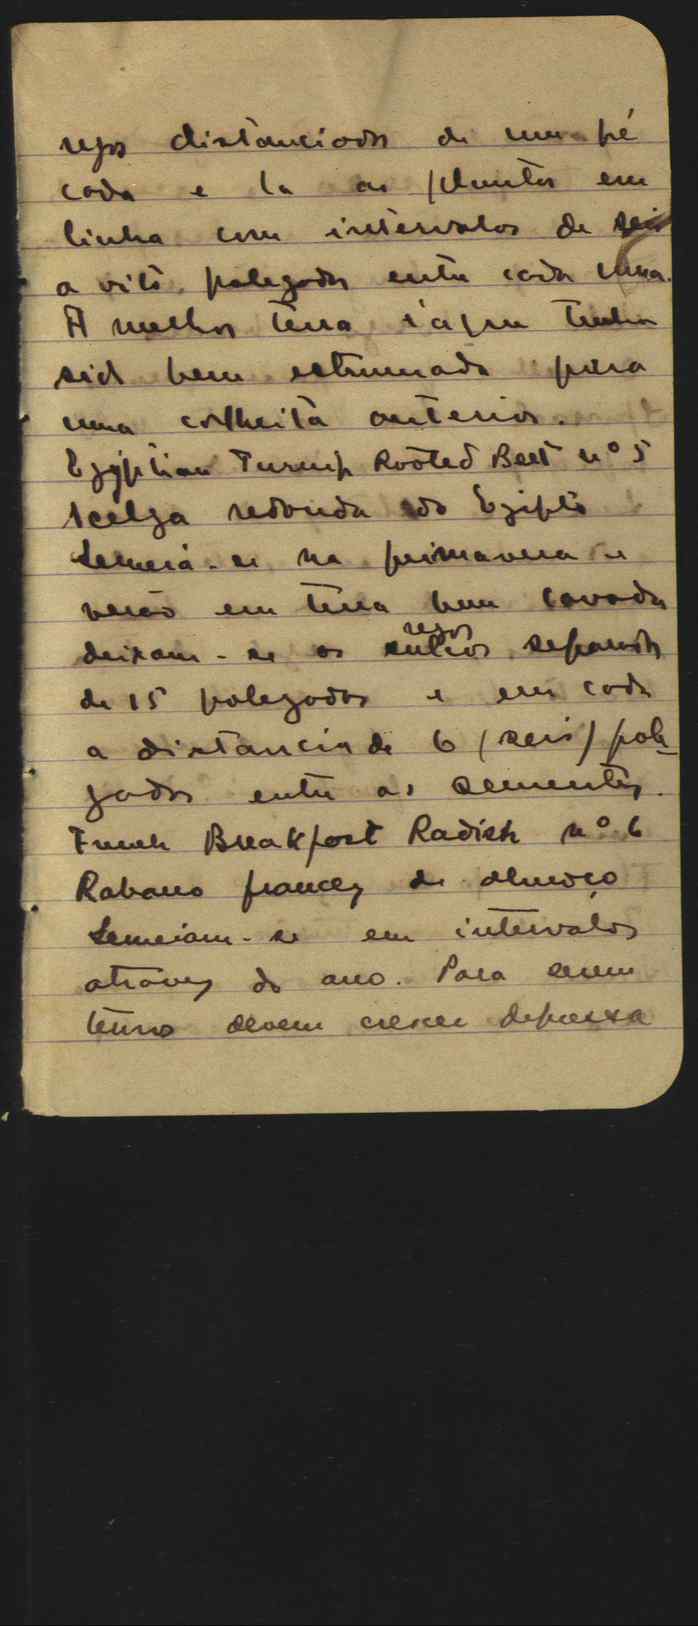 regos distanciados de um pé
cada e la as plantas em
linha com intervalos de seis
a oito polegadas entre cada uma.
A melhor terra é a que tenha
sido bem estrumada para
uma colheita anterior.
Egyptian Turnip Rooted Beet nº 5
Acelga redonda do Egipto
Semeia-se na primavera e
verão em terra bem cavada
deixam-se os sulcos regos separados
de 15 polegadas e em cada
a distancia de 6 (seis) pole-
gadas entre as sementes.
French Breakfast Radish nº 6
Rabano francez de almoço
Semeiam-se em intervalos
atravez do ano. Para serem
tenros devem crescer depressa